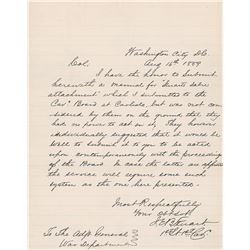 Washington City D.C.
Aug 15th 1889
Col.
I have the honor to submit
herewith a manual for "Stuart's Sabre
attachment" which I submitted to the
Cavy Board at Carlisle, but was not con-
sidered by them on the ground that they
had no power to act in it. They however
individually suggested that it would be
well to submit it to you to be acted
upon contemporaneously with the proceedings
of the Board. In case the latter are adopted
the service will require some such
system as the one here presented.
Most Respectfully
Your obt svt
J.E.B. Stuart
To The Adjt. General
War Department